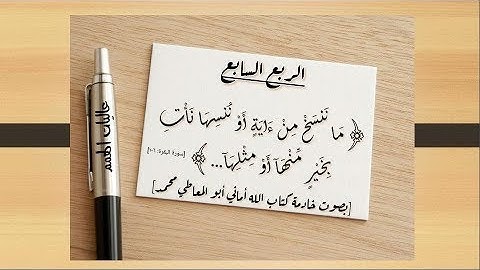 الربع السابع
﴿ مَا نَنسَخْ مِنْ ءَايَةٍ أَوْ نُنسِهَا نَأْتِ
بِخَيْرٍ مِّنْهَآ أَوْ مِثْلِهَآ... ﴾ [سورة البقرة: ١٠٦]
[بصوت خادمة كتاب الله أماني أبو المعاطي محمد]
عاليات الهمم